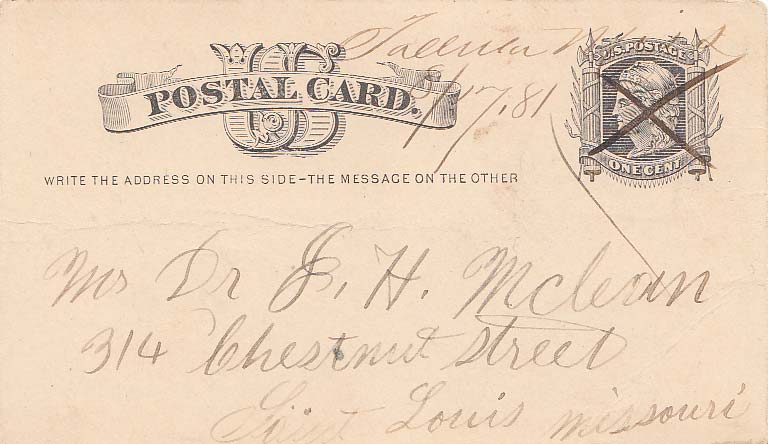 Tallula
7/17/81
US
POSTAL CARD.
U.S. POSTAGE
ONE CENT
WRITE THE ADDRESS ON THIS SIDE-THE MESSAGE ON THE OTHER
Mrs Dr J. H. McLean
314 Chestnut Street
Saint Louis Missouri